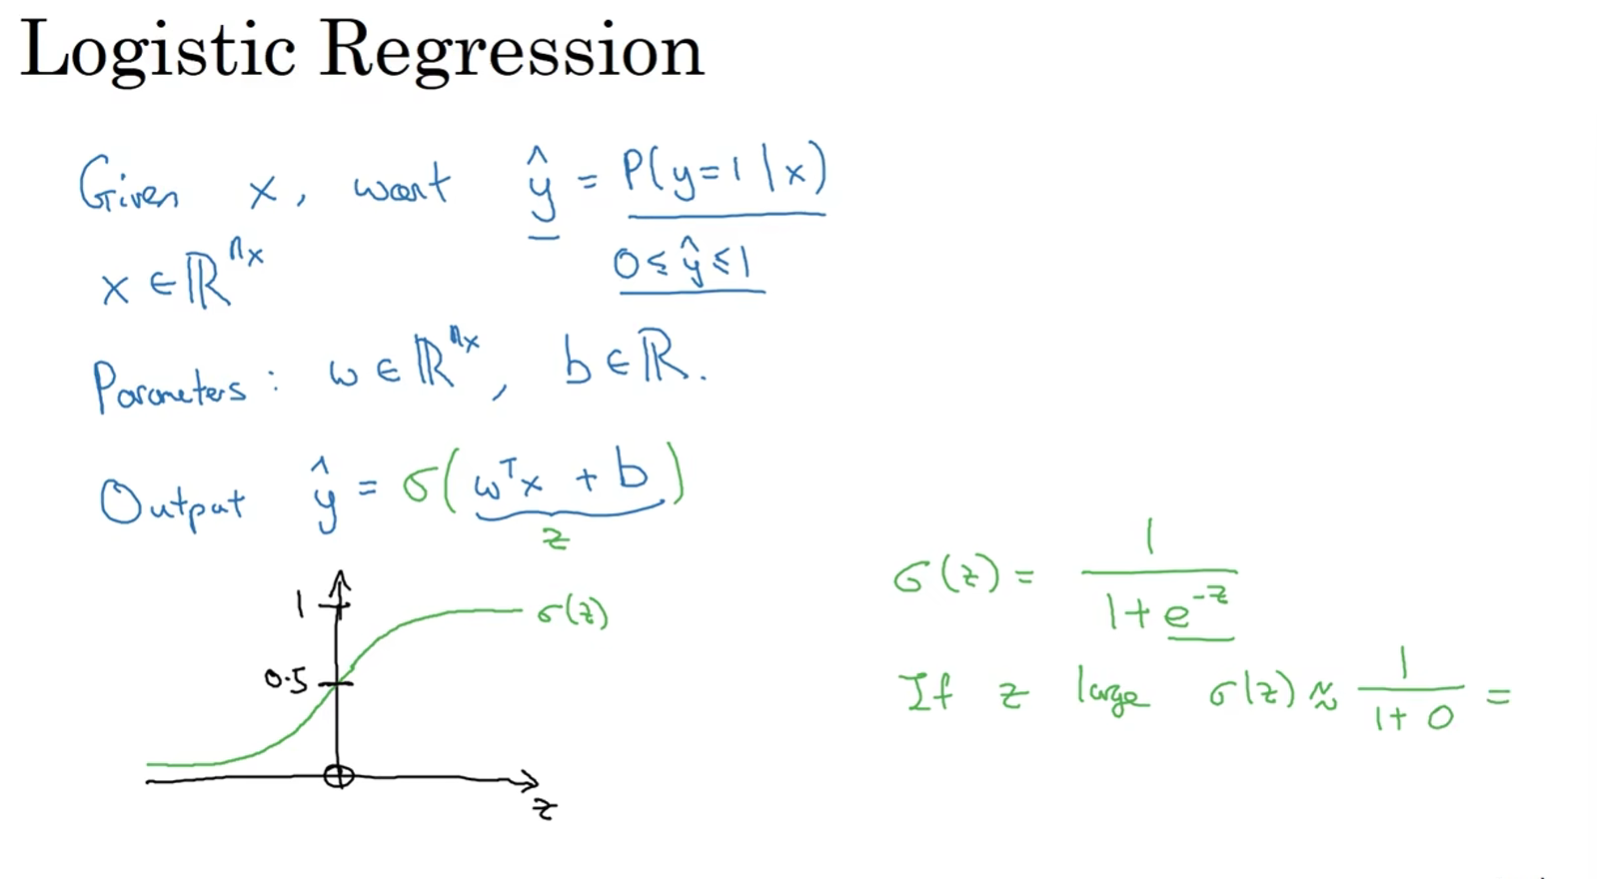 Logistic Regression
Given x, want ŷ = P(y=1|x)
x ∈ ℝ^nx
0 ≤ ŷ ≤ 1
Parameters: w ∈ ℝ^nx, b ∈ ℝ.
Output ŷ = σ(wᵀx + b)
z
1
σ(z)
0.5
z
σ(z) = 1/(1+e^-z)
If z large σ(z) ≈ 1/(1+0) =